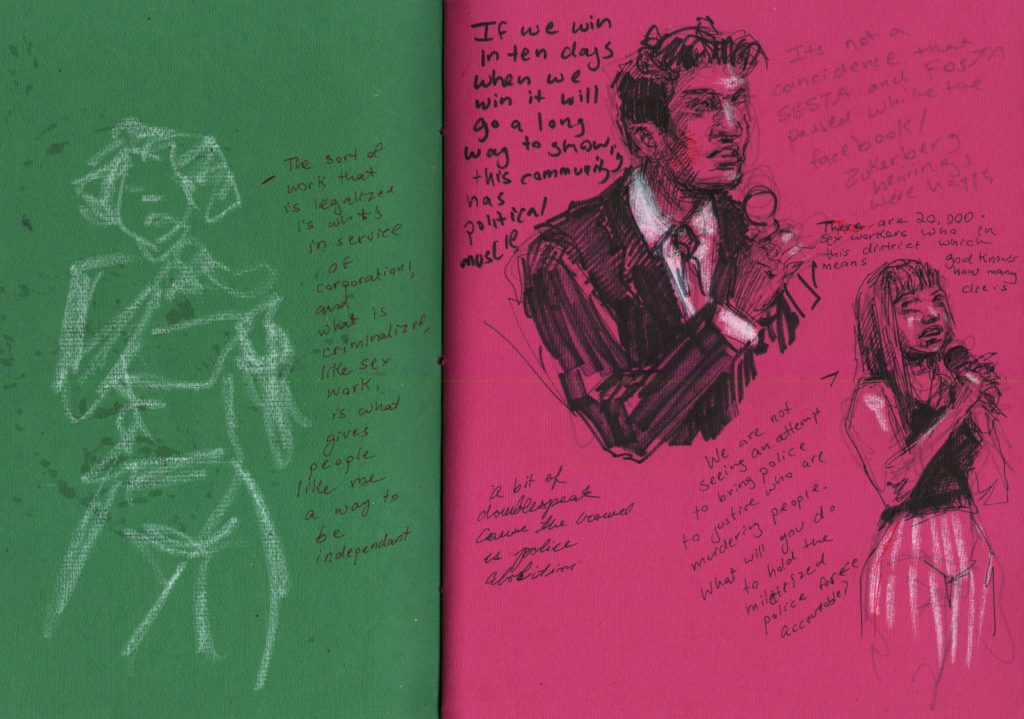 The sort of
work that
is legalized
is what's
in service
of
corporations,
and
what is
criminalized,
like sex
work,
is what
gives
people
like me
a way to
be
independant
If we win
in ten days
when we
win it will
go a long
way to show,
this community
has
political
Its not a
coincidence that
SESTA and FOSTA
passed while the
facebook/
Zukarberg
hearings
were
There are 20,000
sex workers who in
this district which
means
god knows
how many
a bit of
doublespeak
cause the crowd
is police
abolition
We are not
seeing an attempt
to bring police
to justice who are
murdering people.
What will you do
to hold the
militrized
police force
accountable?